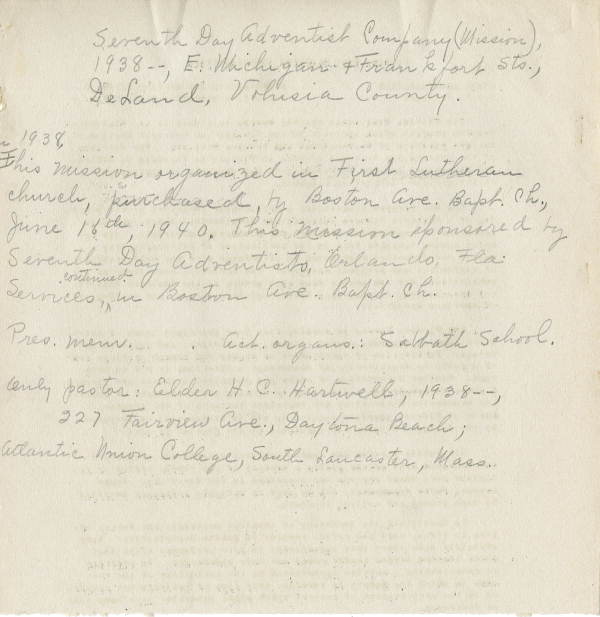 Seventh Day Adventist Company (Mission),
1938--, E. Michigan & Frankfort Sts.,
DeLand, Volusia County.
1938,
This mission organized in First Lutheran
church, purchased by Boston Ave. Bapt. Ch.,
June 16th, 1940. This Mission sponsored by
Seventh Day Adventists, Orlando, Fla.
continued
Services, in Boston Ave. Bapt. Ch.
Pres. mem. . Act. organs.: Sabbath School.
Only pastor: Elder H. C. Hartwell, 1938--,
227 Fairview Ave., Daytona Beach;
Atlantic Union College, South Lancaster, Mass.